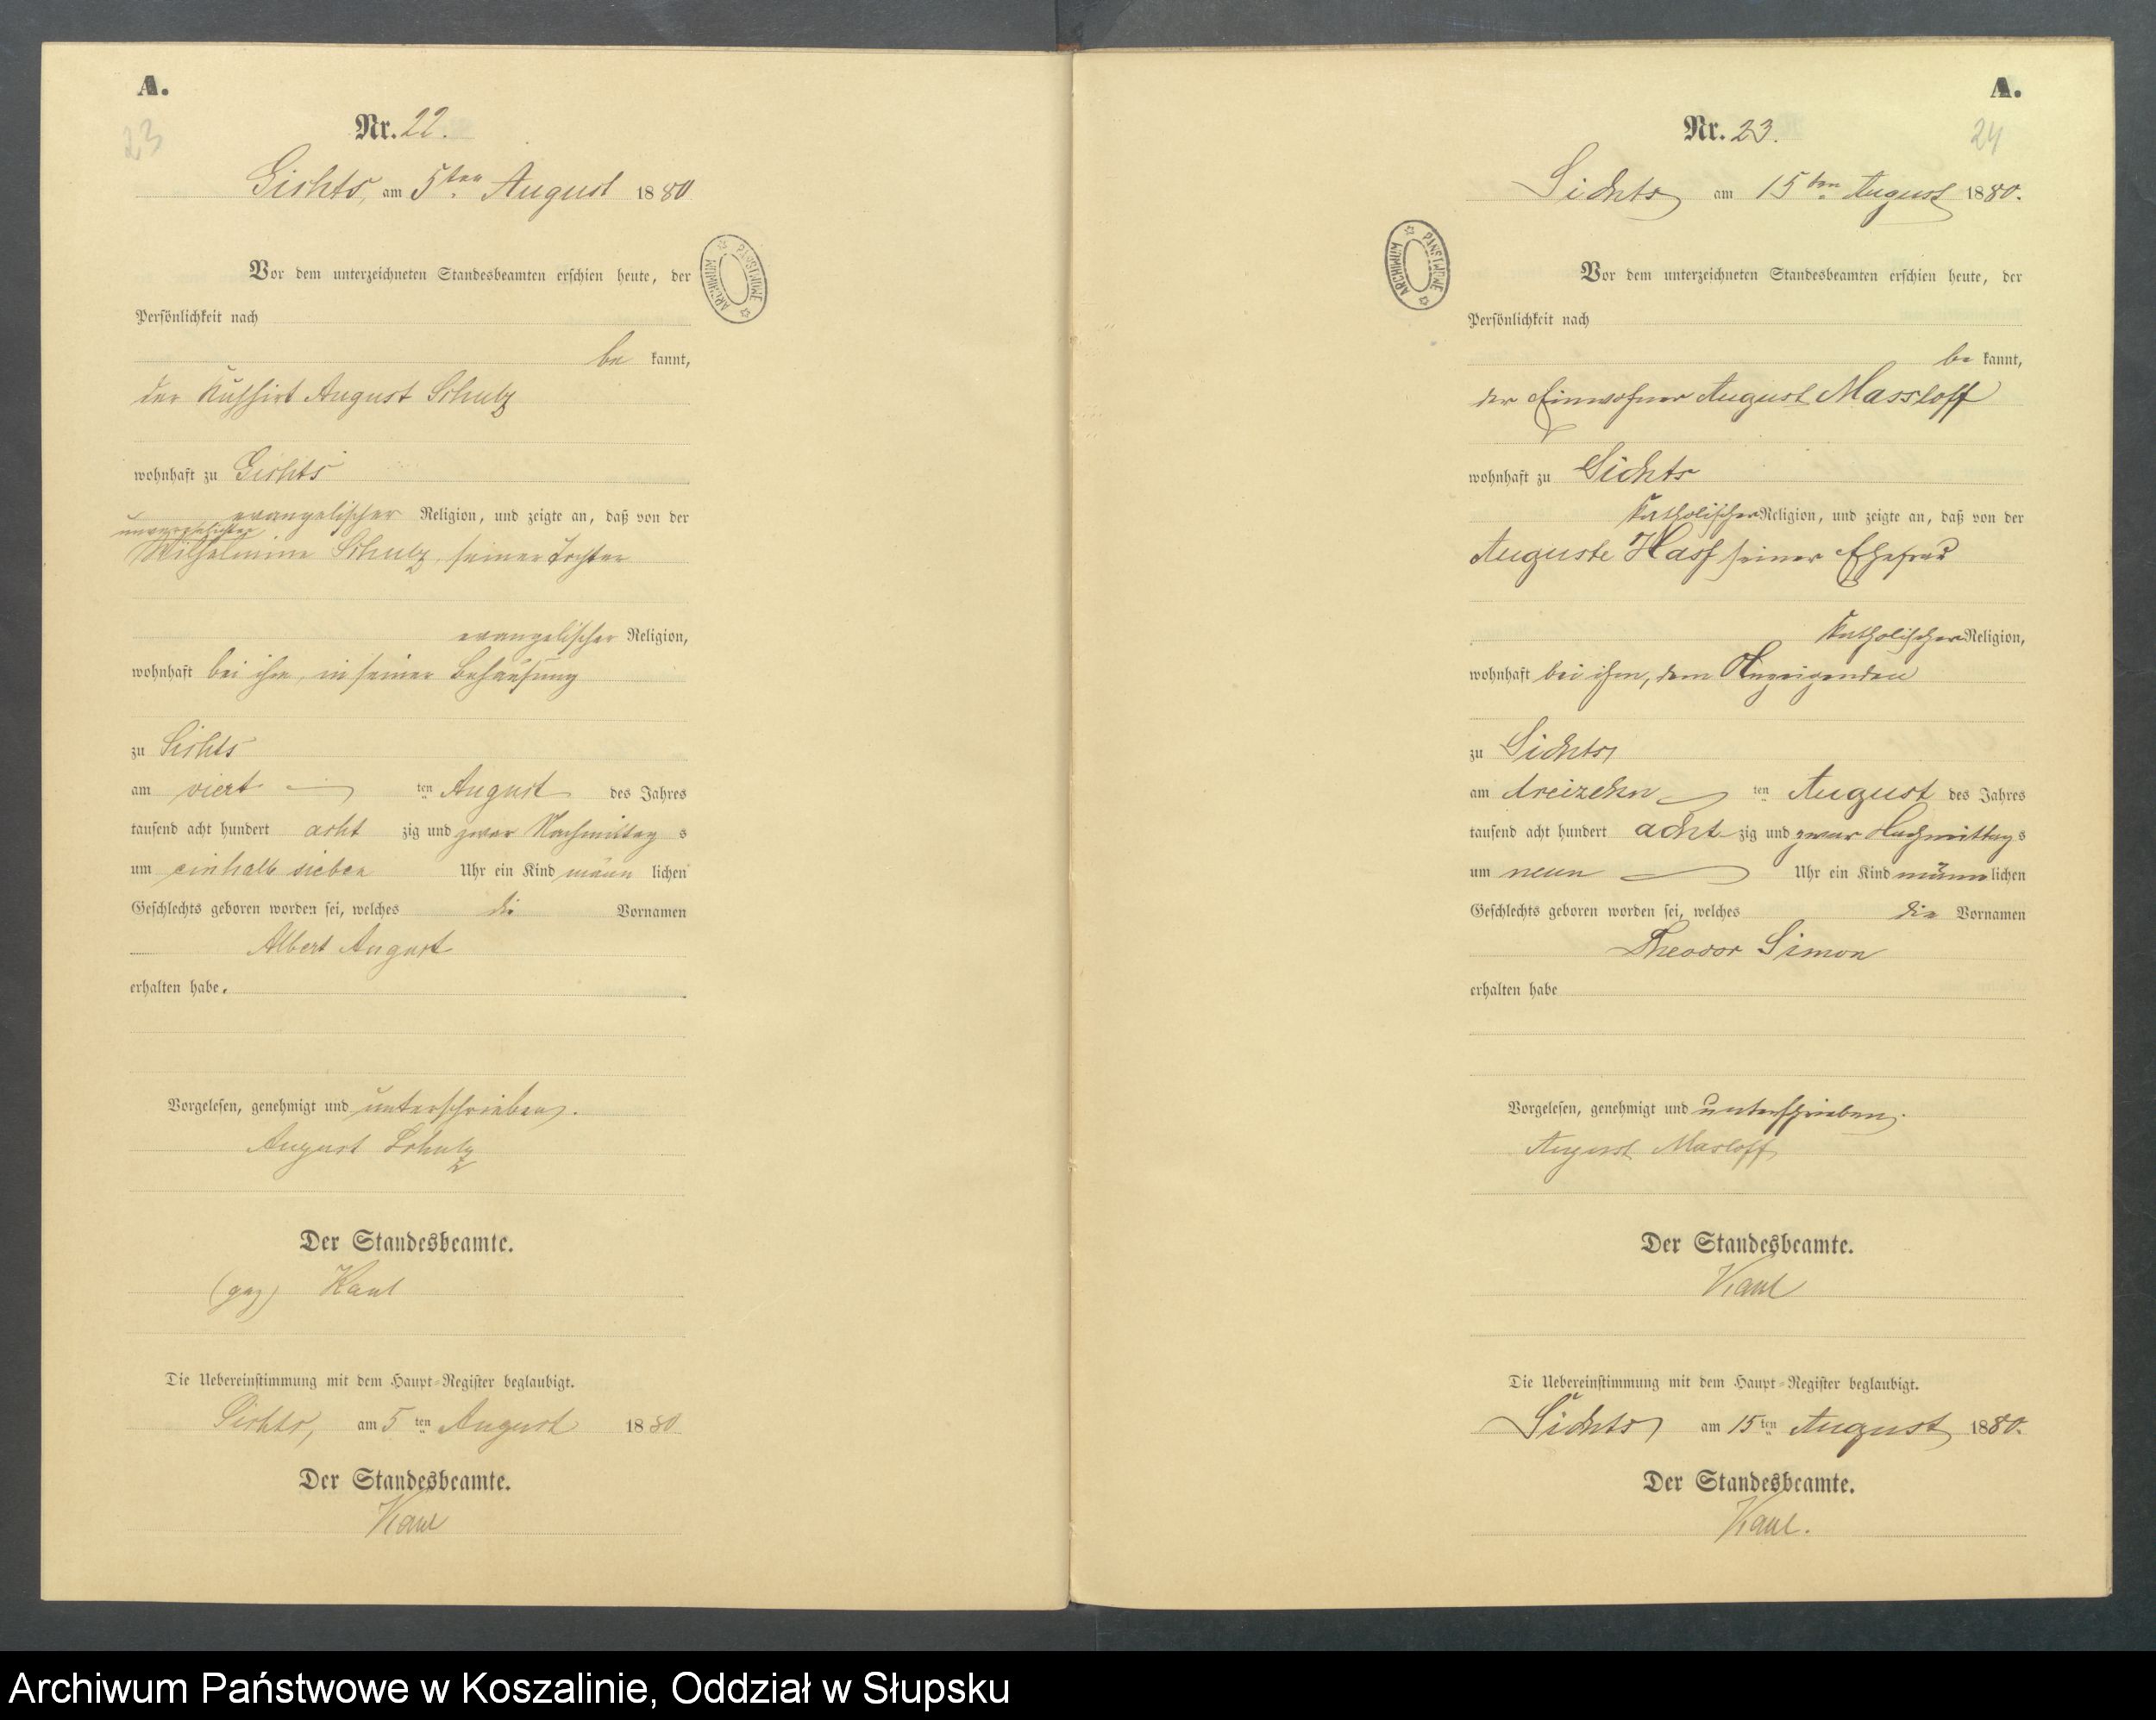 A.
23
Nr. 22.
Sichts, am 5ten August 1880
Vor dem unterzeichneten Standesbeamten erschien heute, der
Persönlichkeit nach
be kannt,
der Kuhhirt August Schulz
wohnhaft zu Sichts
evangelischer Religion, und zeigte an, daß von der
unverehelichten
Wilhelmine Schulz, seiner Tochter
evangelischer Religion,
wohnhaft bei ihm, in seiner Behausung
zu Sichts
am viert ten August des Jahres
tausend acht hundert acht zig und zwar Nachmittag s
um einhalb sieben Uhr ein Kind männ lichen
Geschlechts geboren worden sei, welches die Vornamen
Albert August
erhalten habe.
Vorgelesen, genehmigt und unterschrieben.
August Schulz
Der Standesbeamte.
(gez) Kaul
Die Uebereinstimmung mit dem Haupt-Register beglaubigt.
Sichts, am 5 ten August 1880
Der Standesbeamte.
Kaul
ARCHIWUM PAŃSTWOWE
A.
24
Nr. 23.
Sichts am 15ten August 1880.
Vor dem unterzeichneten Standesbeamten erschien heute, der
Persönlichkeit nach
be kannt,
der Einwohner August Massloff
wohnhaft zu Sichts
katholischer Religion, und zeigte an, daß von der
Auguste Hass seiner Ehefrau
katholischer Religion,
wohnhaft bei ihm, dem Anzeigenden
zu Sichts
am dreizehn ten August des Jahres
tausend acht hundert acht zig und zwar Nachmittag s
um neun Uhr ein Kind männ lichen
Geschlechts geboren worden sei, welches die Vornamen
Theodor Simon
erhalten habe
Vorgelesen, genehmigt und unterschrieben.
August Masloff
Der Standesbeamte.
Kaul
Die Uebereinstimmung mit dem Haupt-Register beglaubigt.
Sichts am 15 ten August 1880.
Der Standesbeamte.
Kaul.
ARCHIWUM PAŃSTWOWE
Archiwum Państwowe w Koszalinie, Oddział w Słupsku